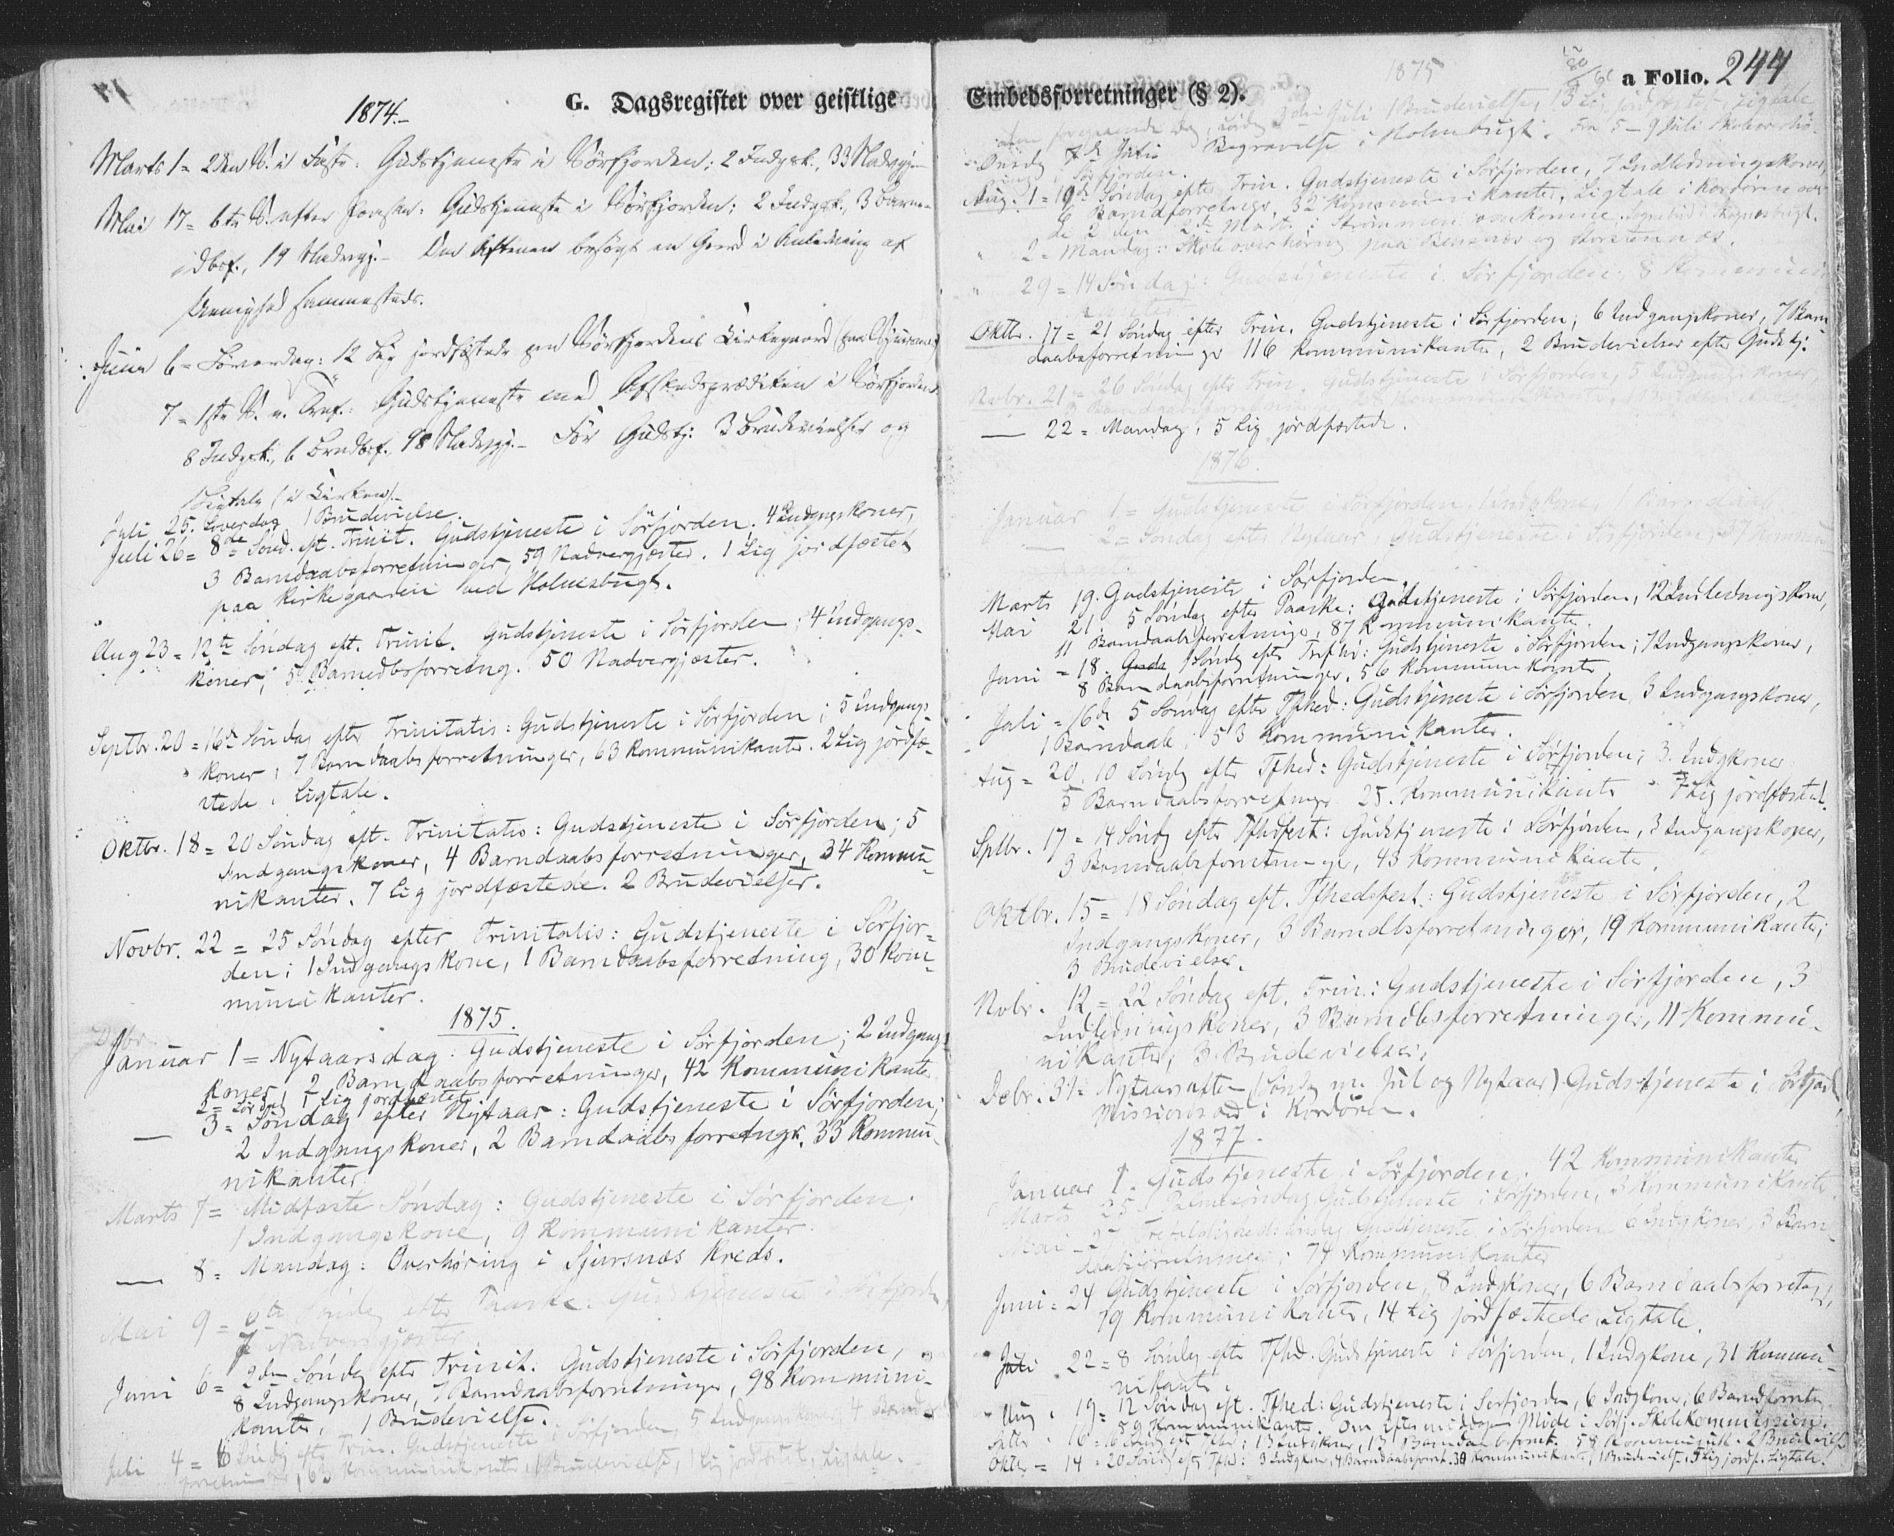 G. Dagsregister over geistlige
1874.-
Marts 1 = 2den S. i Faste: Gudstjeneste i Sörfjorden: 2 Indgsk., 33 Nadvgj.-
Mai 17 = 6te S. efter Paaske: Gudstjeneste i Sörfjorden; 2 Indgsk., 3 Barne-
dbsf., 19 Nadvrgj. - Om Aftenen besøgt en Gaard i Anledning af
Uenighed sammesteds.
Juni 6 = Löverdag: 12 Lig jordfæstede paa Sörfjordens Kirkegaard (paa Sjursnæs)
7 = 1ste S. e. Tref.: Gudstjeneste med Afskedsprædiken i Sörfjorden
8 Indgsk., 6 Brndbsf., 98 Nadvgj. - För Gudstj. 3 Brudevielser og
1 Ligtale (i Kirken).-
Juli 25. Loverdag 1 Brudevielse.
Juli 26 = 8de Sönd. eft. Trinit. Gudstjeneste i Sörfjorden. 4 Indgngskoner,
3 Barndaabsforretninger, 59 Nadvergjæster. 1 Lig jordfæstet
paa Kirkegaarden ved Holmebugt.
Aug 23 = 12te Søndag eft. Trinit. Gudstjeneste i Sørfjorden; 4 Indgangs-
koner; 5 Barnedbsforretng. 50 Nadvergjæster.
Septbr. 20 = 16de Søndag efter Trinitatis: Gudstjeneste i Sørfjorden; 5 Indgangs-
koner; 7 Barndaabsforretninger, 63 Kommunikanter. 2 Lig jordfæ-
stede, Ligtale.
Oktbr. 18 = 20 Søndag eft. Trinitatis: Gudstjeneste i Sørfjorden; 5
Indgangskoner, 4 Barndaabsforretninger, 34 Kommu-
nikanter. 7 Lig jordfæstede. 2 Brudevielser.
Novbr. 22 = 25 Søndag efter Trinitatis: Gudstjeneste i Sørfjor-
den; 1 Indgangskone, 1 Barndaabsforretning, 30 Kom-
munikanter.
1875.
Januar 1 = Nytaarsdag: Gudstjeneste i Sørfjorden; 2 Indgangs-
koner, 2 Barndaabsforretninger, 42 Kommunikante
2 = Lørdag 1 Lig jordfæstet
— 3 = Søndag efter Nytaar: Gudstjeneste i Sørfjorden;
2 Indgangskoner, 2 Barndaabsforretngr. 33 Kommu-
nikanter.
Marts 7 = Midfaste Søndag: Gudstjeneste i Sørfjorden.
1 Indgangskone, 9 Kommunikanter.
— 8 = Mandag: Overhøring i Sjursnæs Kreds.
Mai 9 = 6te Søndag efter Paaske: Gudstjeneste i Sørfjorden,
7 Nadvergjæster
Juni 6 = 2den Søndag efter Trinit. Gudstjeneste i Sørfjorden,
8 Indgangskoner, 7 Barndaabsforretninger, 98 Kommuni-
kanter, 1 Brudevielse.
Juli 4 = 6 Søndg efter Trin. Gudstjeneste i Sørfjorden, 5 Indgangskoner, 4 Barnd
forretninger, Kommunikanter, 1 Brudevielse, 1 Lig jordfæstet, Ligtale.
Embedsforretninger (§ 2).
a Folio. 244
1875
den foregaaende Dag, Lørdag 3die Juli 1 Brudevielse, 13 Lig jordfæstet, Ligtale
Onsdag 7de Julie Begravelse i Holmbugt. Fra 5-9 Juli Skoleover
i Sørfjorden.
Aug. 1 = 10de Søndag efter Trin. Gudstjeneste i Sørfjorden, 7 Indledningskoner,
6 Barndforretngr, 32 Kommunikanter, Ligtale i Kordøren over
de 2 den Marts i Strømmen omkomne.
" 2 = Mandag: Skoleoverhøring paa Bensnæs og Storstennæs.
" 29 = 14 Søndag: Gudstjeneste i Sørfjorden, 8 Kommuni-
Oktbr. 17 = 21 Søndag efter Trin. Gudstjeneste i Sørfjorden; 6 Indgangskoner, 7 Barn
daabsforretninger 116 Kommunikanter, 2 Brudevielser efter Gudstj.
Novbr. 21 = 26 Søndag efter Trin. Gudstjeneste i Sørfjorden, 5 Indgangskoner,
— 22 = Mandag, 5 Lig jordfæstede.
1876.
Januar 1 = Gudstjeneste i Sørfjorden,
— 2 = Søndag efter Nytaar Gudstjeneste i Sørfjorden, 37 Kommu
Marts 19. Gudstjeneste i Sørfjorden.
Mai 21. 5 Søndag efter Paaske: Gudstjeneste i Sørfjorden, 12 Indledningskoner,
11 Barndaabsforretninge, 87 Kommunikanter.
Juni = 18. Guds 1 Søndg efter Trefhd: Gudstjeneste i Sørfjorden; 7 Indgangskoner,
8 Barndaabsforretninger, 56 Kommunikanter
Juli = 16de 5 Søndag efter Tfhed: Gudstjeneste i Sørfjorden 3 Indgangskoner,
1 Barndaab, 53 Kommunikanter.
Aug = 20. 10 Søndg efter Tfhed: Gudstjeneste i Sørfjorden; 3. Indgkoner
5 Barndaabsforretnngr 25. Kommunikante 7 Lig jordfæstet.
Sptbr. 17 = 14 Søndg efter Tfhdfest: Gudstjeneste i Sørfjorden, 3 Indgangskoner,
3 Barndaabsforretninger, 43 Kommunikante.
Oktbr. 15 = 18 Søndag eft. Tfhedsfest: Gudstjeneste i Sørfjorden, 2
Indgangskoner, 3 Barndbsforretninger, 19 Kommunikanter;
3 Brudevielser.
Nvbr. 12 = 22 Søndag eft. Trin: Gudstjeneste i Sørfjorden, 3
Indledningskoner, 3 Barndbsforretninger, 11 Kommu-
nikanter, 3 Brudevielser.
Debr. 31 = Nytaarsaften (Søndg m. Jul og Nytaar) Gudstjeneste i Sørfjord
Missions i Kordøren.
1877.
Januar 1. Gudstjeneste i Sørfjorden. 42 Kommunikanter
Marts 25 Palmesøndag Gudstjeneste i Sørfjorden, 3 Kommunikante.
Mai 27 Trefoldighedssøndag Gudstjeneste i Sørfjorden 6 Indgkoner, 3 Barn-
daabsforretninger; 74 Kommunikanter
Juni = 24 Gudstjeneste i Sørfjorden, 8 Indgkoner, 6 Barndaabsforretngr,
79 Kommunikanter, 14 Lig jordfæstede, Ligtale.
Juli 22 = 8 Søndag efter Tfhd. Gudstjeneste i Sørfjorden, 1 Indgkone, 31 Kommu-
nikante.
Aug. 19 = 12 Søndag eft. Tfhed: Gudstjeneste i Sørfjorden, 6 Indgkoner, 6 Barndforretn
89 Kommunikante, Om Eftermiddagen Møde i Sørfj. Skolekommission.
16 = 16 Søndg eft Tfhd: 13 Indgkoner, 13 Barndaabsforret. 58 Kommunik. 2 Brudeviels
Oktbr = 14 = 20 Sønd efter Tfhd: 3 Indgkon, 4 Barndaabsforret. 38 Kommunikan. 1 Brudevielse, 5 Lig jordf. Ligtale.